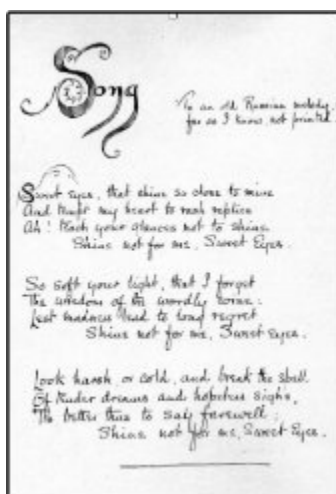 Song
To an old Russian melody
far as I know not printed
Sweet Eyes, that shine so close to mine
And tempt my heart to rash replies
Ah! teach your glances not to shine
Shine not for me, Sweet Eyes.
So soft your light, that I forget
The wisdom of the wordly wise:
Lest madness lead to long regret
Shine not for me, Sweet Eyes.
Look harsh, or cold, and break the spell
Of tender dreams and hopeless sighs,
The better thus to say farewell:
Shine not for me, Sweet Eyes.